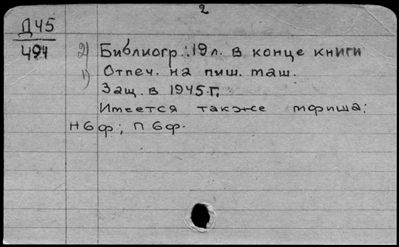 2
Д45
494
2) Библиогр.: 19 л. в конце книги
1) Отпеч. на пиш. маш.
Защ. в 1945 г.
Имеется также мфиша:
Н6ф; П6ф.